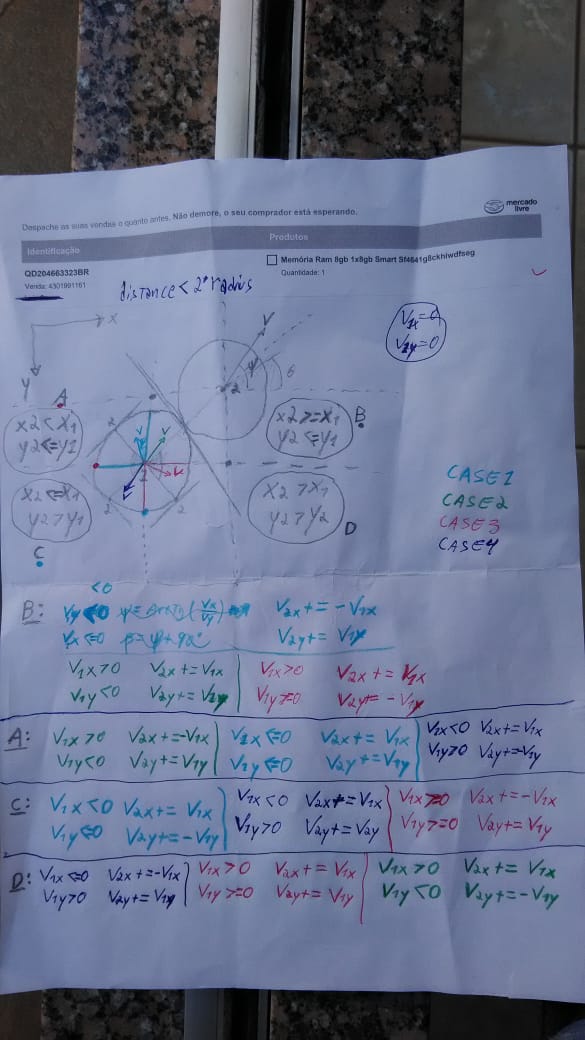 Despache as suas vendas o quanto antes. Não demore, o seu comprador está esperando.
mercado livre
Identificação
Produtos
QD204663323BR
Venda: 4301991161
Memória Ram 8gb 1x8gb Smart Sf4641g8ckhiwdfseg
Quantidade: 1
distance < 2*radius
V1x=0
V1y=0
X
Y
V
ψ
θ
2
A
x2 < x1
y2 <= y1
x2 >= x1
y2 <= y1
B
2
V
V
V
V
1
2
2
x2 <= x1
y2 > y1
C
x2 > x1
y2 > y2
D
CASE1
CASE2
CASE3
CASE4
<0
B: Vy <0 V2x += -V1x
Vx <=0 V2y += V1y
V1x>0 V2x += V1x
V1y<0 V2y += V1y
V1x>0 V2x += V1x
V1y>=0 V2y += -V1y
A: V1x>0 V2x += -V1x
V1y<0 V2y += V1y
V1x <=0 V2x += V1x
V1y <=0 V2y += V1y
V1x<0 V2x += V1x
V1y>0 V2y += -V1y
C: V1x<0 V2x += V1x
V1y<=0 V2y += -V1y
V1x<0 V2x += V1x
V1y>0 V2y += V2y
V1x>=0 V2x += -V1x
V1y>=0 V2y += V1y
D: V1x <=0 V2x += -V1x
V1y>0 V2y += V1y
V1x>0 V2x += V1x
V1y>=0 V2y += V1y
V1x>0 V2x += V1x
V1y<0 V2y += -V1y